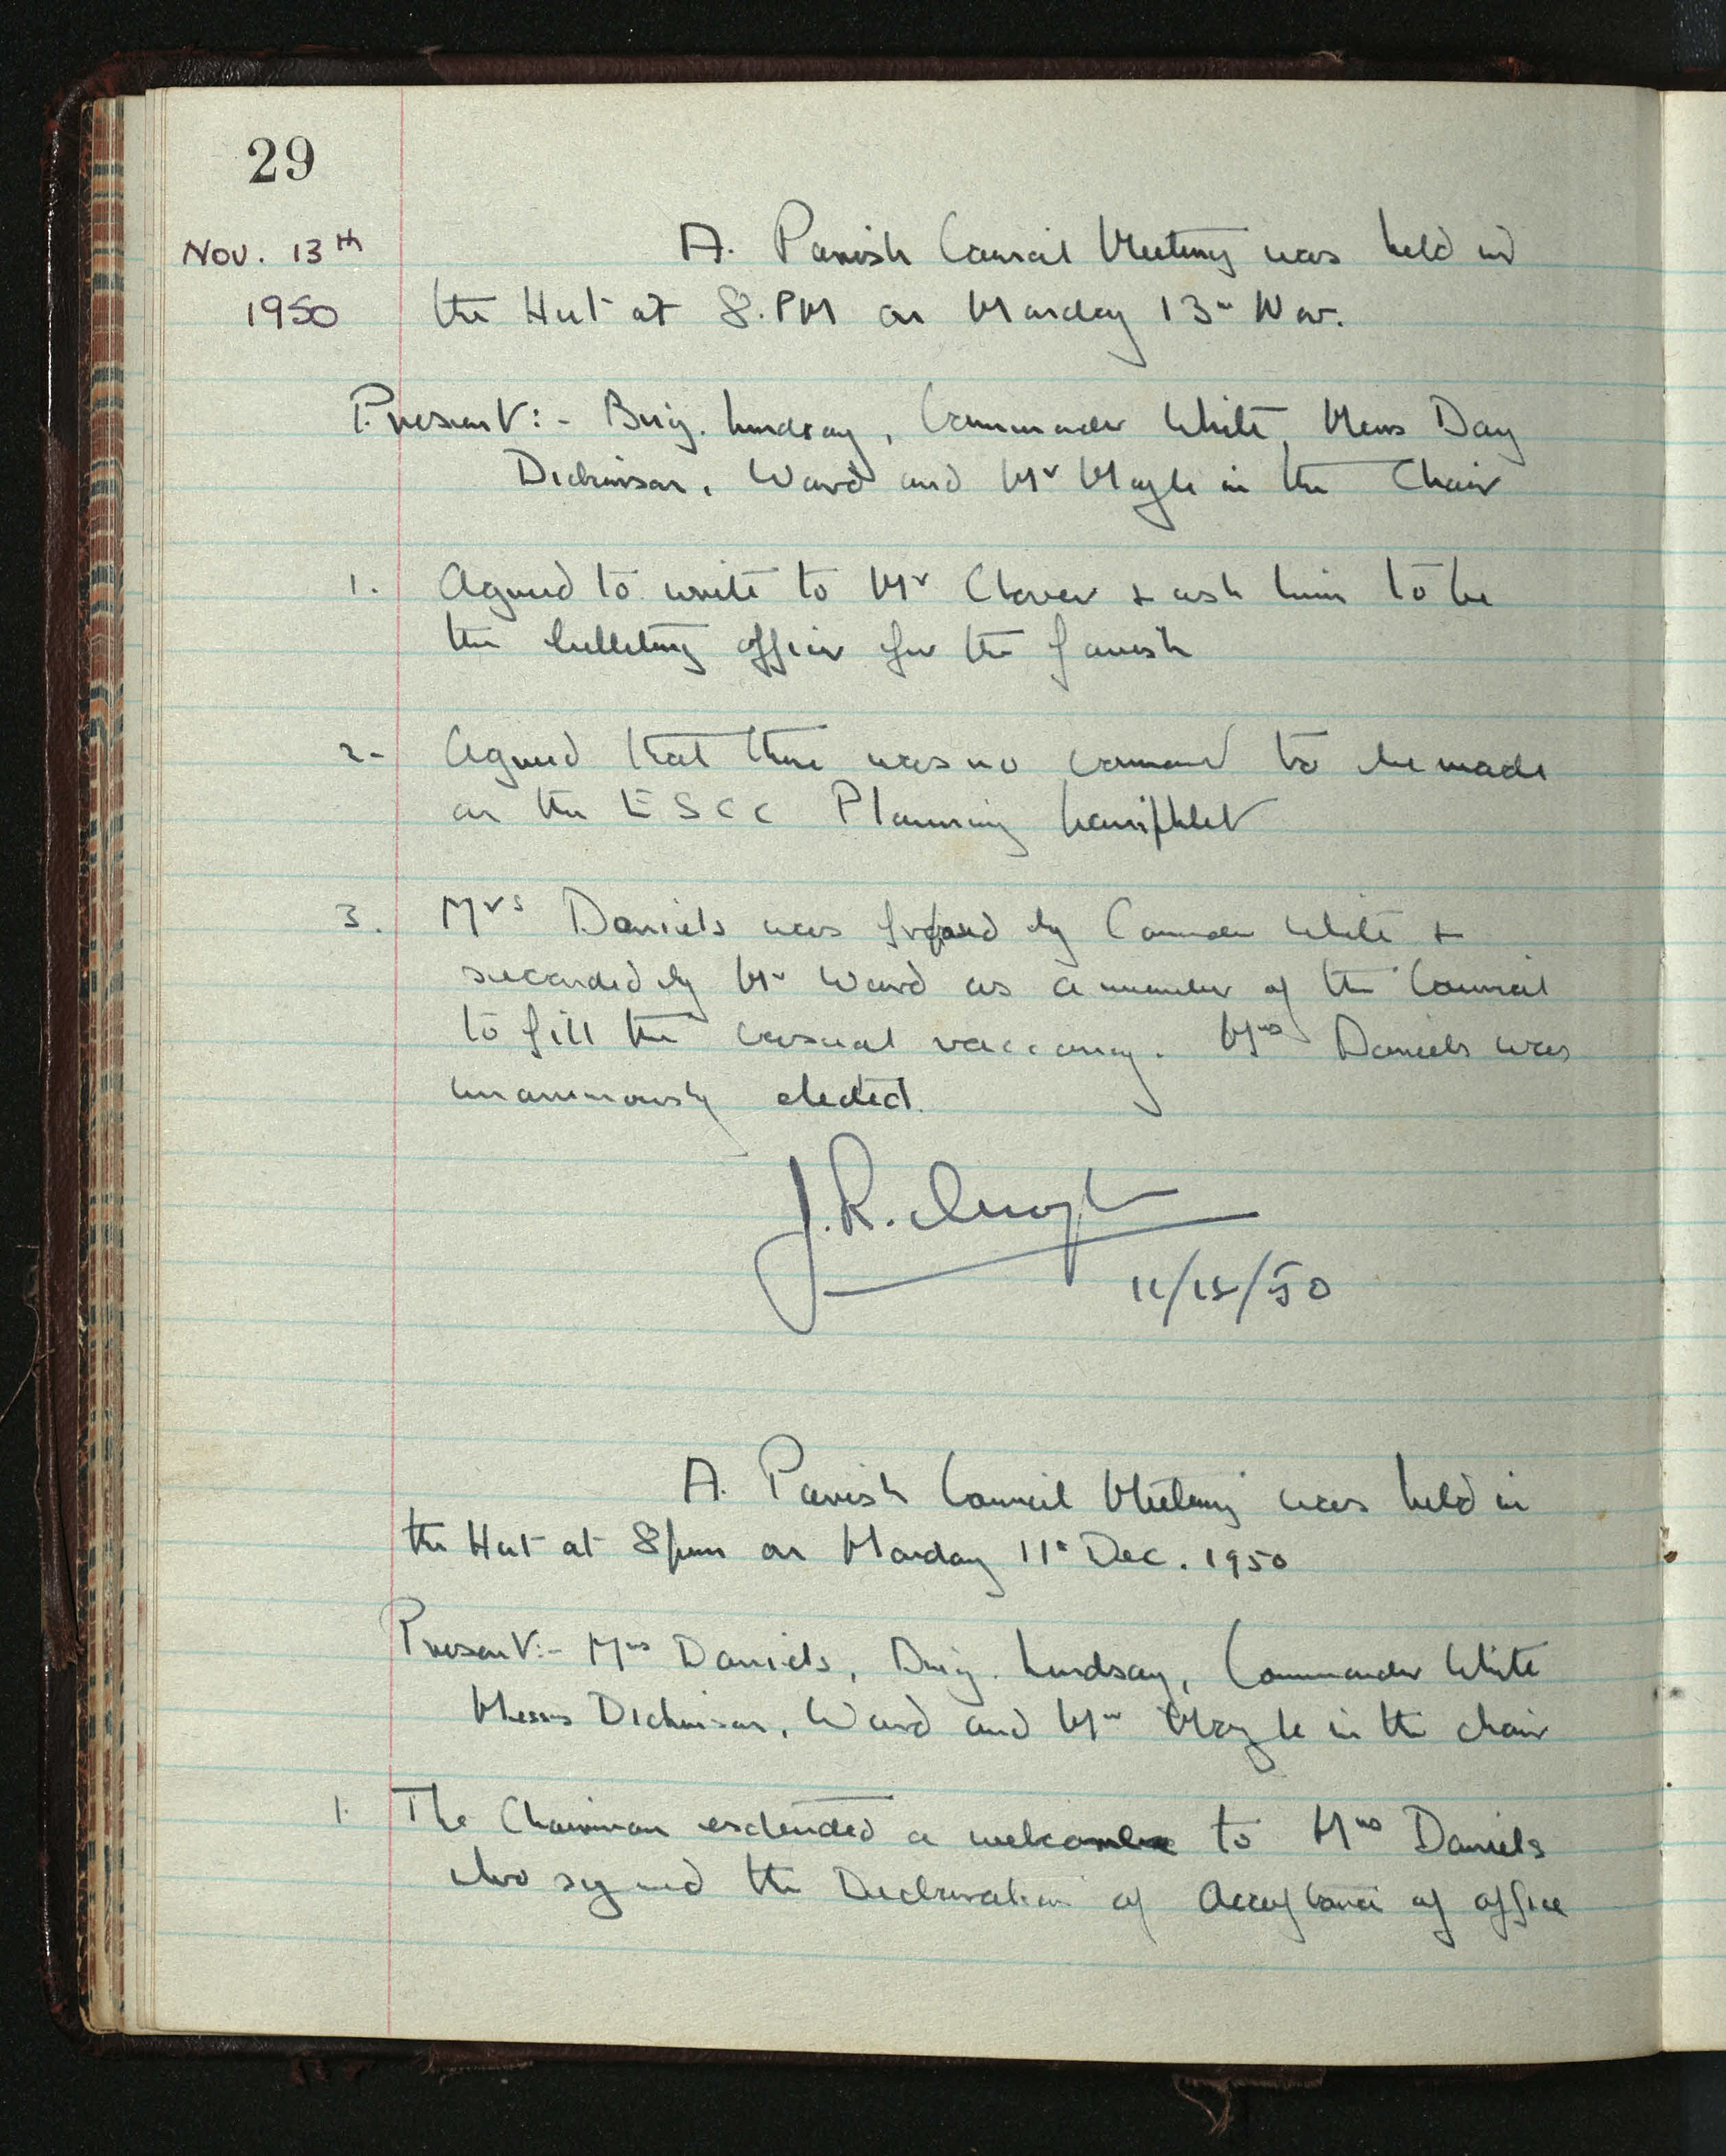 29
Nov. 13th
1950
A. Parish Council Meeting was held in
the Hut at 8.PM on Monday 13th Nov.
Present:- Brig. Lindsay, Commander White, Mess Day
Dickinson, Ward and Mr Mayle in the Chair
1. Agreed to write to Mr Clover & ask him to be
the billeting officer for the parish
2- Agreed that there was no comment to be made
on the ESCC Planning pamphlet
3. Mrs Daniels was proposed by Comman White &
seconded by Mr Ward as a member of the Council
to fill the casual vaccancy. Mrs Daniels was
unanimously elected.
J.R.
11/12/50
A. Parish Council Meeting was held in
the Hut at 8pm on Monday 11th Dec. 1950
Present:- Mrs Daniels, Brig. Lindsay, Commander White
Messrs Dickinson, Ward and Mr Mayle in the chair
1. The Chairman extended a welcome to Mrs Daniels
who signed the Declaration of Acceptance of office